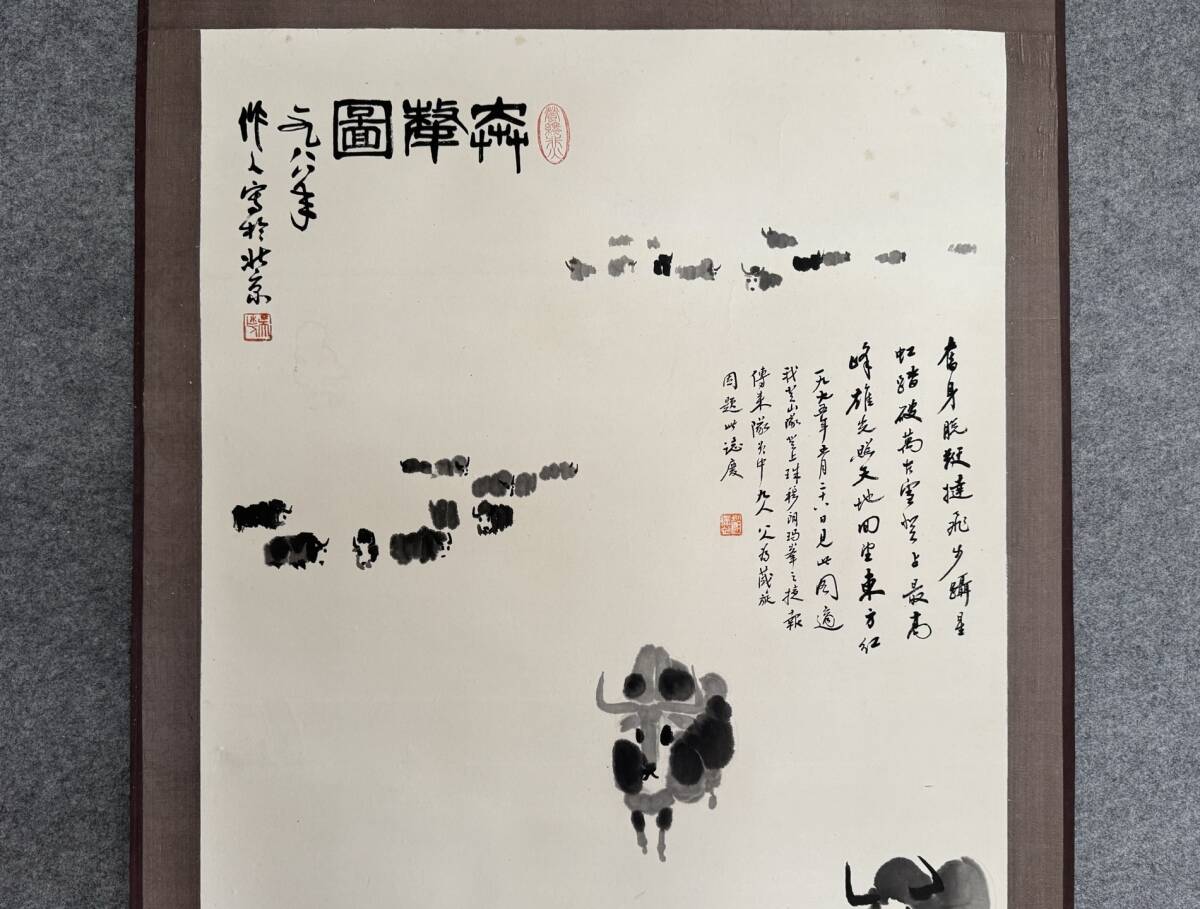 奔犛圖
一九八八年
作人寫於北京
奮身脫鞭撻飛步躡星
虹踏破萬古雪登上最高
峰雄光照天地回望東方紅
一九七五年五月二十八日見此圖適
我登山隊登上珠穆朗瑪峯之捷報
傳來隊員中九人八人為藏族
因題此誌慶